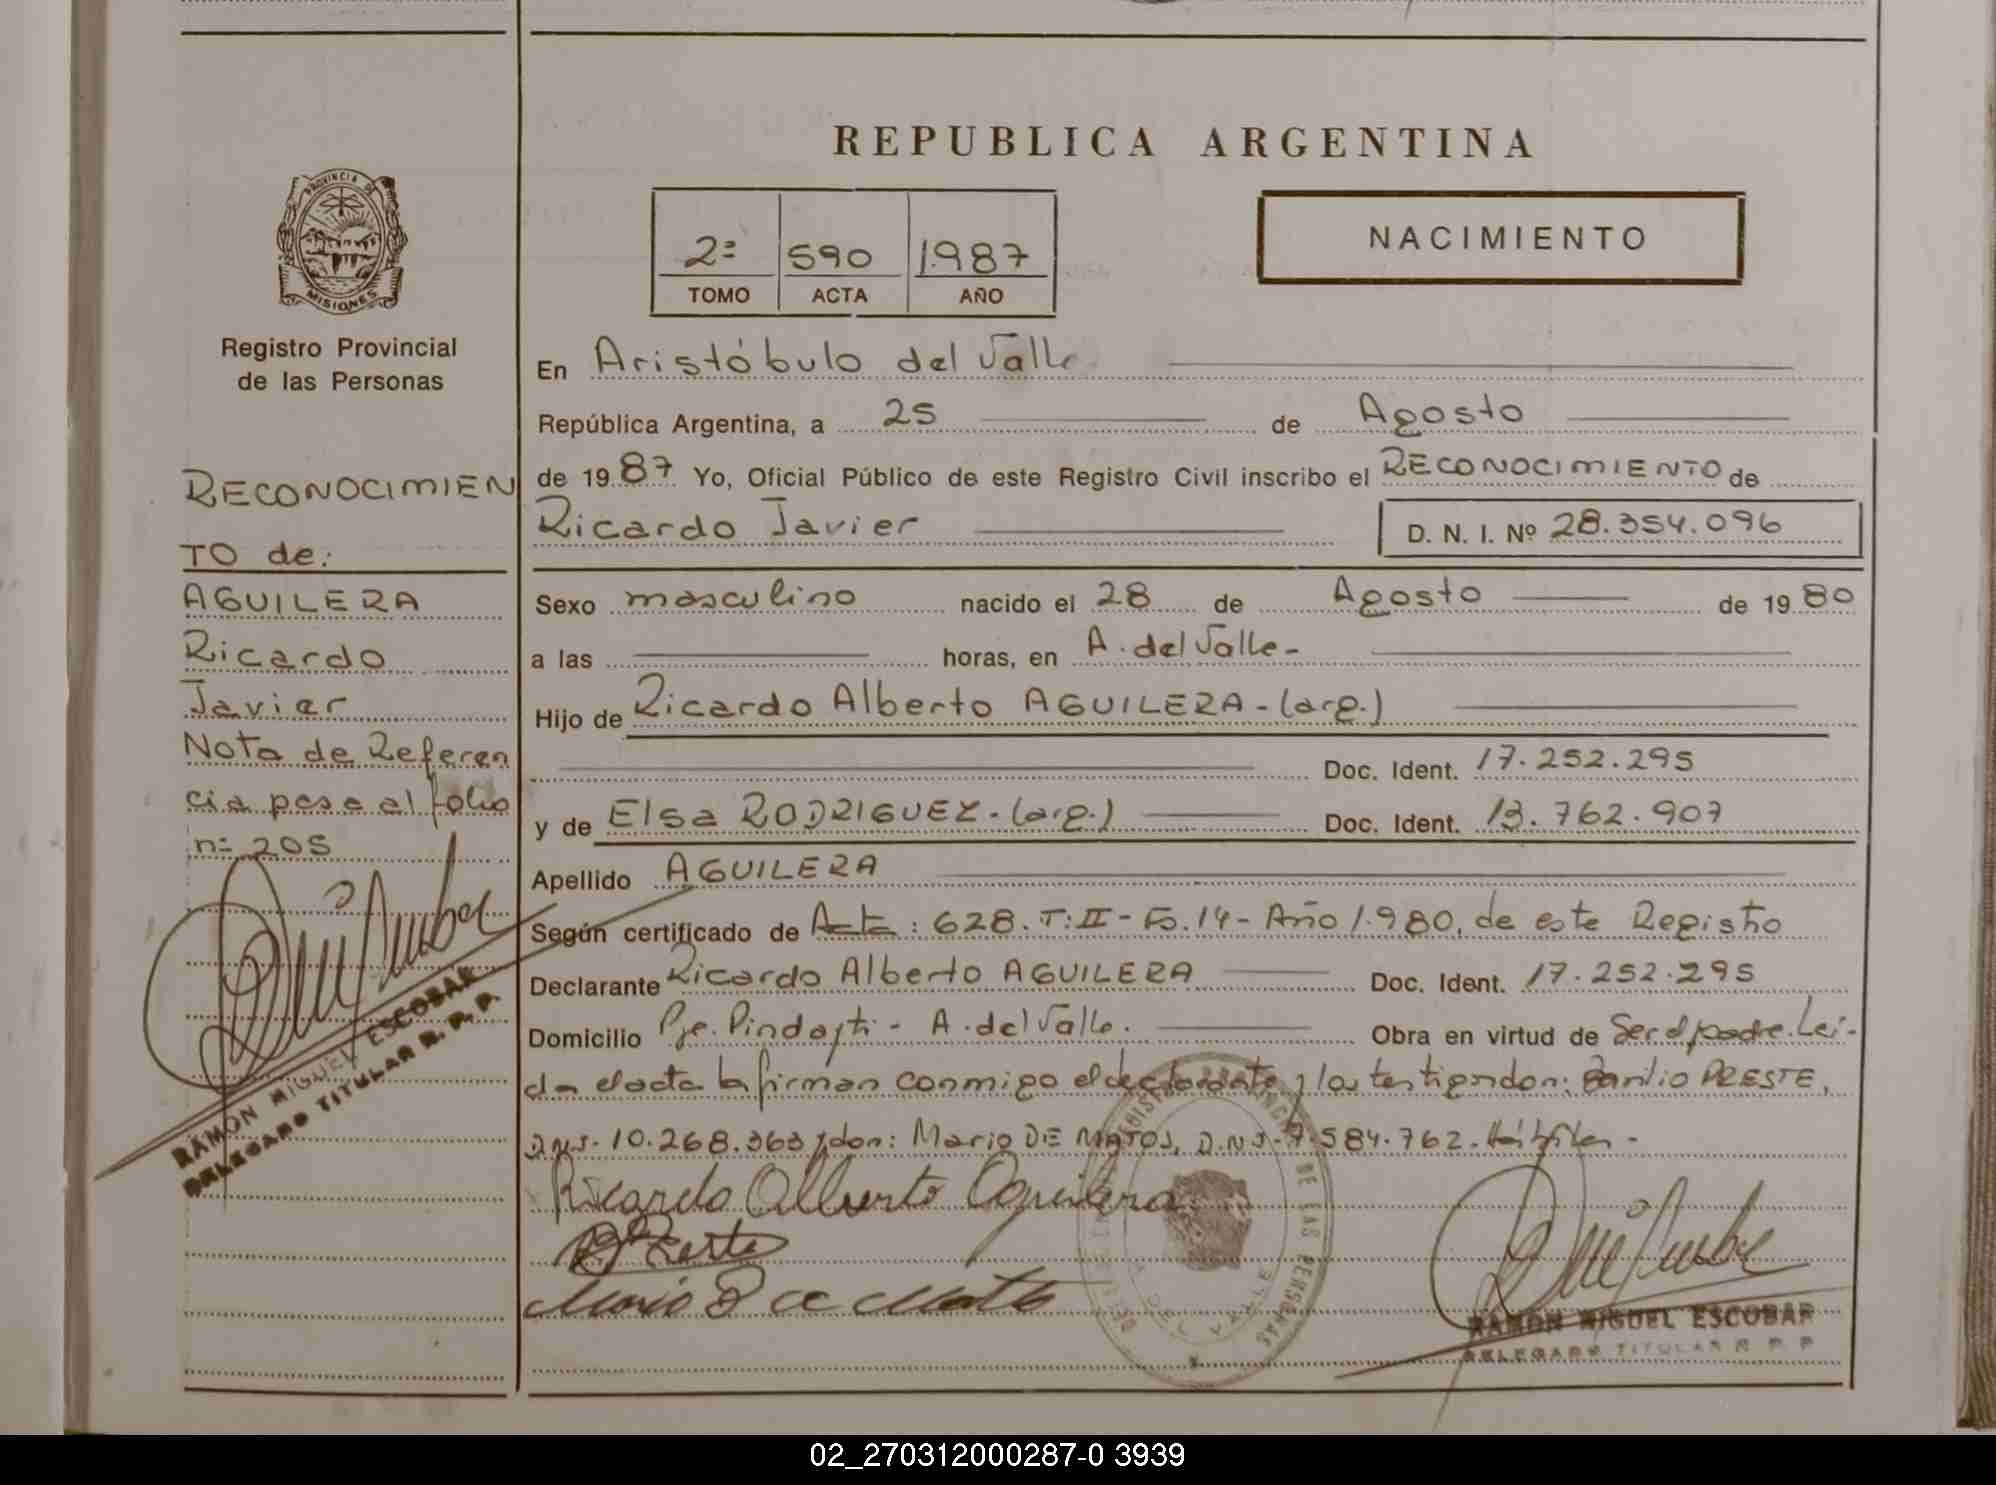 REPUBLICA ARGENTINA
PROVINCIA DE
MISIONES
Registro Provincial
de las Personas
2º 590 1.987
TOMO ACTA AÑO
NACIMIENTO
RECONOCIMIEN
TO de:
AGUILERA
Ricardo
Javier
Nota de Referen
cia pasa al folio
nº 205
RAMON MIGUEL ESCOBAR
DELEGADO TITULAR R. P. P.
En Aristóbulo del Valle
República Argentina, a 25 de Agosto
de 19 87 Yo, Oficial Público de este Registro Civil inscribo el RECONOCIMIENTO de
Ricardo Javier D. N. I. Nº 28.354.096
Sexo masculino nacido el 28 de Agosto de 19 80
a las horas, en A. del Valle-
Hijo de Ricardo Alberto AGUILERA-(arg.)
Doc. Ident. 17.252.295
y de Elsa RODRIGUEZ-(arg.) Doc. Ident. 13.762.907
Apellido AGUILERA
Según certificado de Acta: 628. T:II- Fo.14- Año 1.980, de este Registro
Declarante Ricardo Alberto AGUILERA Doc. Ident. 17.252.295
Domicilio Pje. - A. del Valle. Obra en virtud de Ser el padre. Lei-
da el acta la firman conmigo el declarante y los testigos don: PRESTE,
D.N.I. 10.268.363 y don: Mario DE MATOS, D.N.I. 7.584.762.
Ricardo Alberto Aguilera
Preste
Mario D
RAMON MIGUEL ESCOBAR
DELEGADO TITULAR R P P
DE LAS PERSONAS
02_270312000287-0 3939